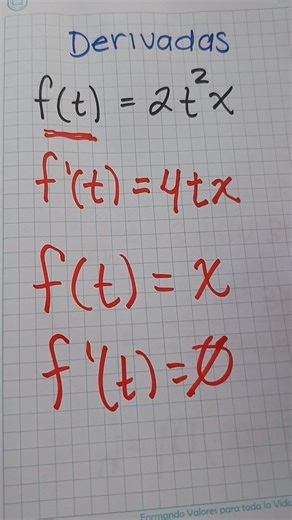 Derivadas
f(t) = 2t²x
f'(t) = 4tx
f(t) = x
f'(t) = 0
Formando Valores para toda la Vida